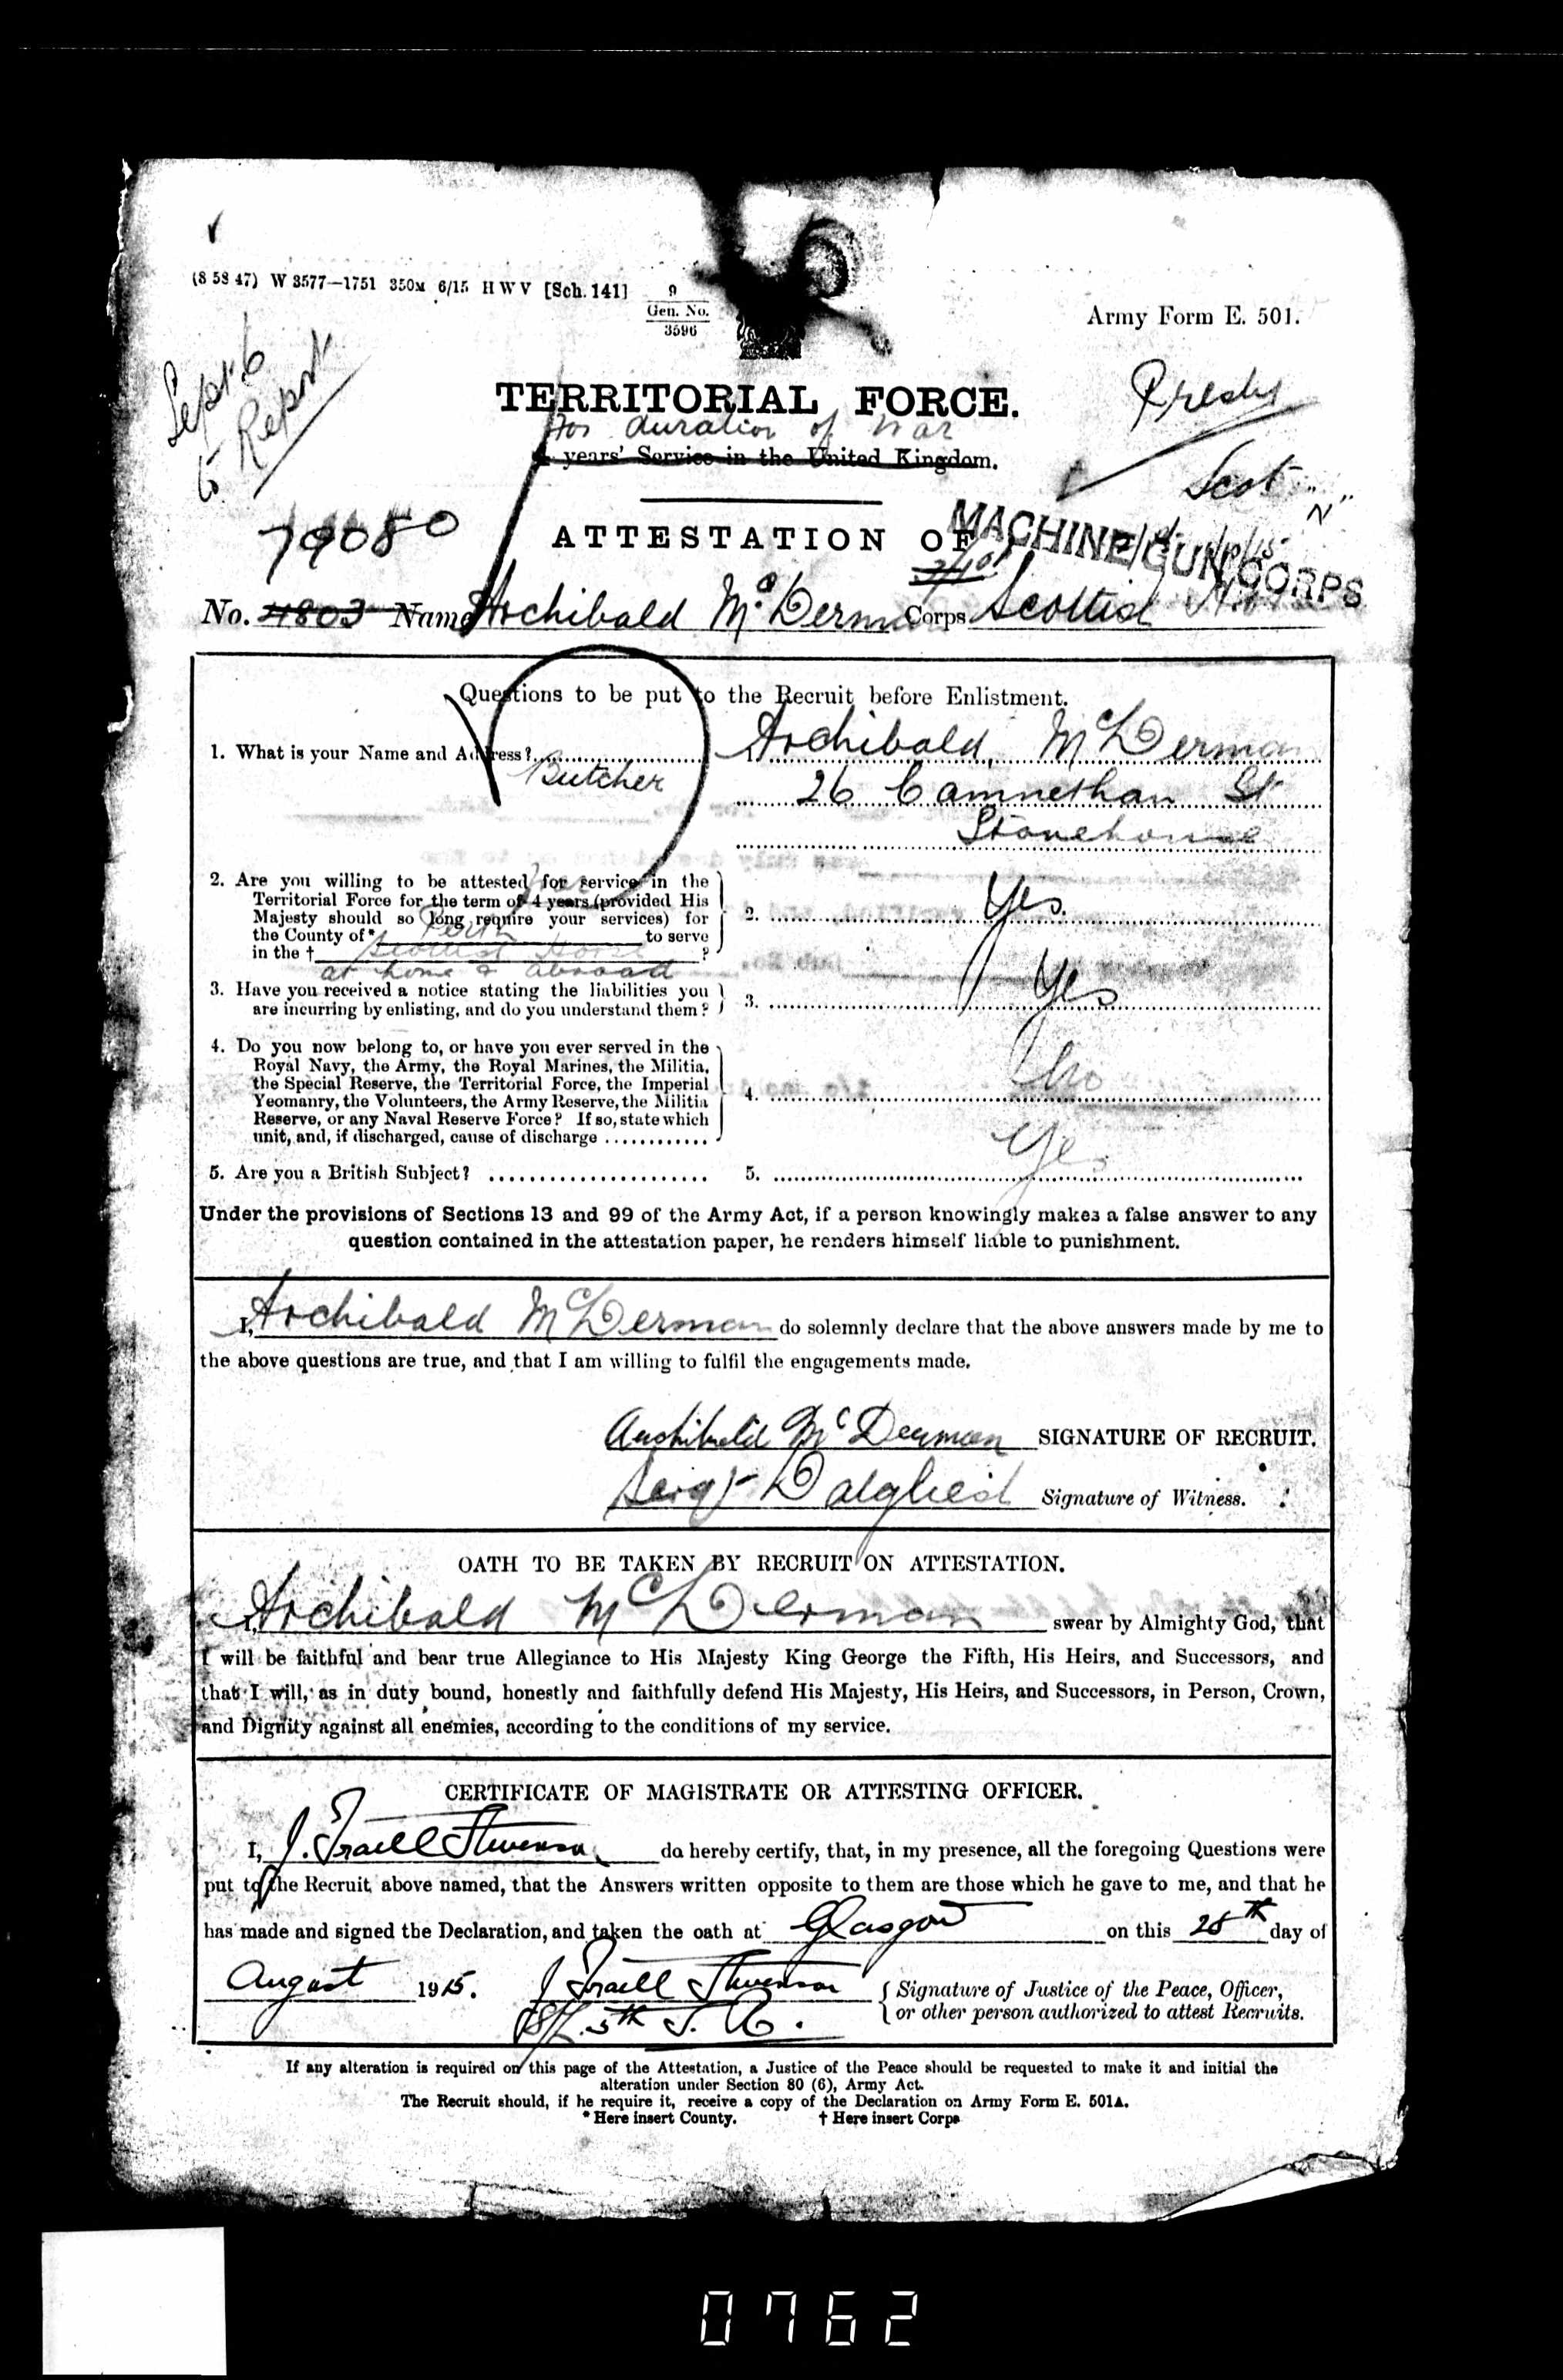 (8 58 47) W 3577—1751 350M 6/15 H W V [Sch. 141] 9
Gen. No.
3596
Army Form E. 501.
Sept 6
to Report
Presby
TERRITORIAL FORCE.
For duration of War
4 years' Service in the United Kingdom.
Scot
79080
ATTESTATION OF
MACHINE GUN CORPS
No. 4803 Name Archibald McDerman Corps Scottish
Questions to be put to the Recruit before Enlistment.
1. What is your Name and Address? 1. Archibald McDerman
Butcher
26 Camnethan St
Stonehouse
2. Are you willing to be attested for service in the
Territorial Force for the term of 4 years (provided His
Majesty should so long require your services) for
the County of* Perth to serve
in the † Scottish Horse ?
2. Yes.
at home & abroad
3. Have you received a notice stating the liabilities you
are incurring by enlisting, and do you understand them?
3. Yes
4. Do you now belong to, or have you ever served in the
Royal Navy, the Army, the Royal Marines, the Militia,
the Special Reserve, the Territorial Force, the Imperial
Yeomanry, the Volunteers, the Army Reserve, the Militia
Reserve, or any Naval Reserve Force? If so, state which
unit, and, if discharged, cause of discharge
4. No
5. Are you a British Subject? 5. Yes
Under the provisions of Sections 13 and 99 of the Army Act, if a person knowingly makes a false answer to any
question contained in the attestation paper, he renders himself liable to punishment.
I, Archibald McDerman do solemnly declare that the above answers made by me to
the above questions are true, and that I am willing to fulfil the engagements made.
Archibald McDerman SIGNATURE OF RECRUIT.
Sergt Dalgliesh Signature of Witness.
OATH TO BE TAKEN BY RECRUIT ON ATTESTATION.
I, Archibald McDerman swear by Almighty God, that
I will be faithful and bear true Allegiance to His Majesty King George the Fifth, His Heirs, and Successors, and
that I will, as in duty bound, honestly and faithfully defend His Majesty, His Heirs, and Successors, in Person, Crown,
and Dignity against all enemies, according to the conditions of my service.
CERTIFICATE OF MAGISTRATE OR ATTESTING OFFICER.
I, J. Stevenson do hereby certify, that, in my presence, all the foregoing Questions were
put to the Recruit above named, that the Answers written opposite to them are those which he gave to me, and that he
has made and signed the Declaration, and taken the oath at Glasgow on this 28th day of
August 1915. J Stevenson
5th S. R.
Signature of Justice of the Peace, Officer,
or other person authorized to attest Recruits.
If any alteration is required on this page of the Attestation, a Justice of the Peace should be requested to make it and initial the
alteration under Section 80 (6), Army Act.
The Recruit should, if he require it, receive a copy of the Declaration on Army Form E. 501A.
* Here insert County. † Here insert Corps
0762